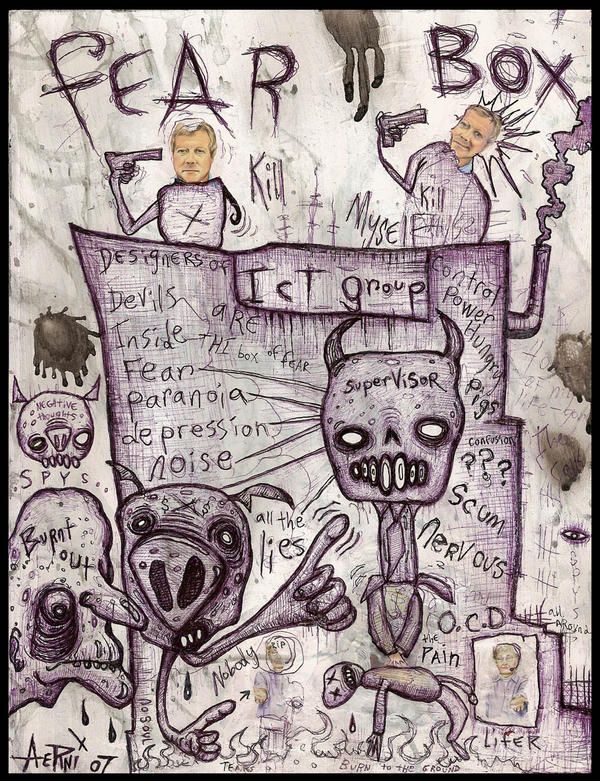 FEAR BOX
Kill
Kill
MYSELF
DESIGNERS OF
ICT group
Control
Power
Hungry
Pigs
Devils
aRE
Inside
THE box of FEAR
Fear
Paranoia
depression
noise
SUPERVISOR
NEGITIVE
thoughts
SPYS
confusion
???
SCUM
NERVOUS
Burnt
out
$ X $
all the
lies
O.C.D
the
PAIN
all
AROUND
SPYS
Nobody
RIP
LIFER
AEPINI X 07
TEARS
BURN to THE GROUND